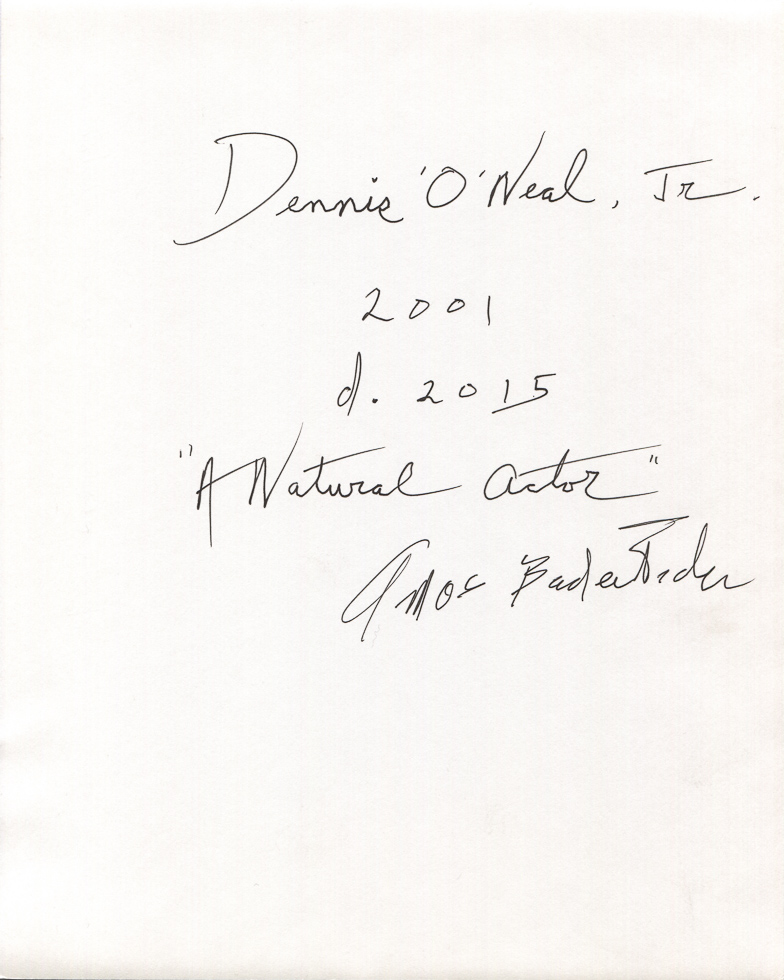 Dennis 'O'Neal, Jr.
2001
d. 2015
"A Natural actor"
Amos Badertscher